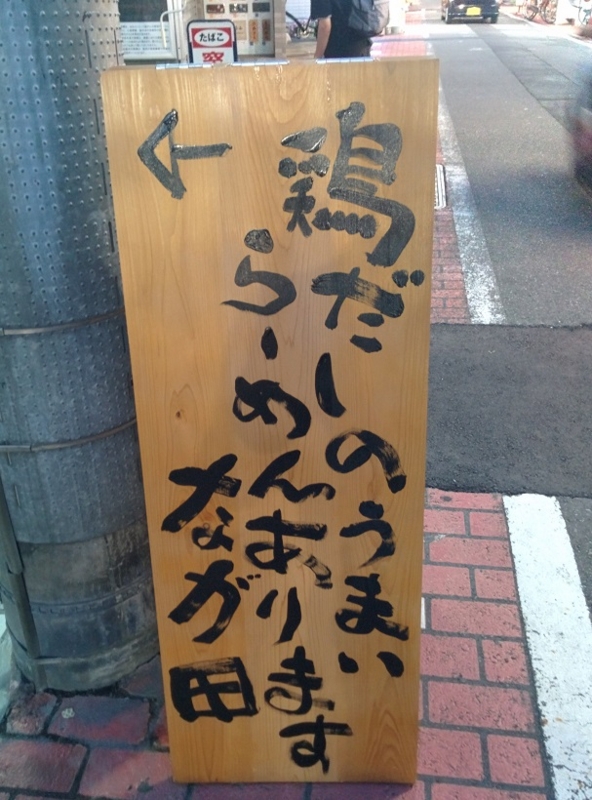 鶏だしのうまい
らーめんあります
なが田
←
たばこ